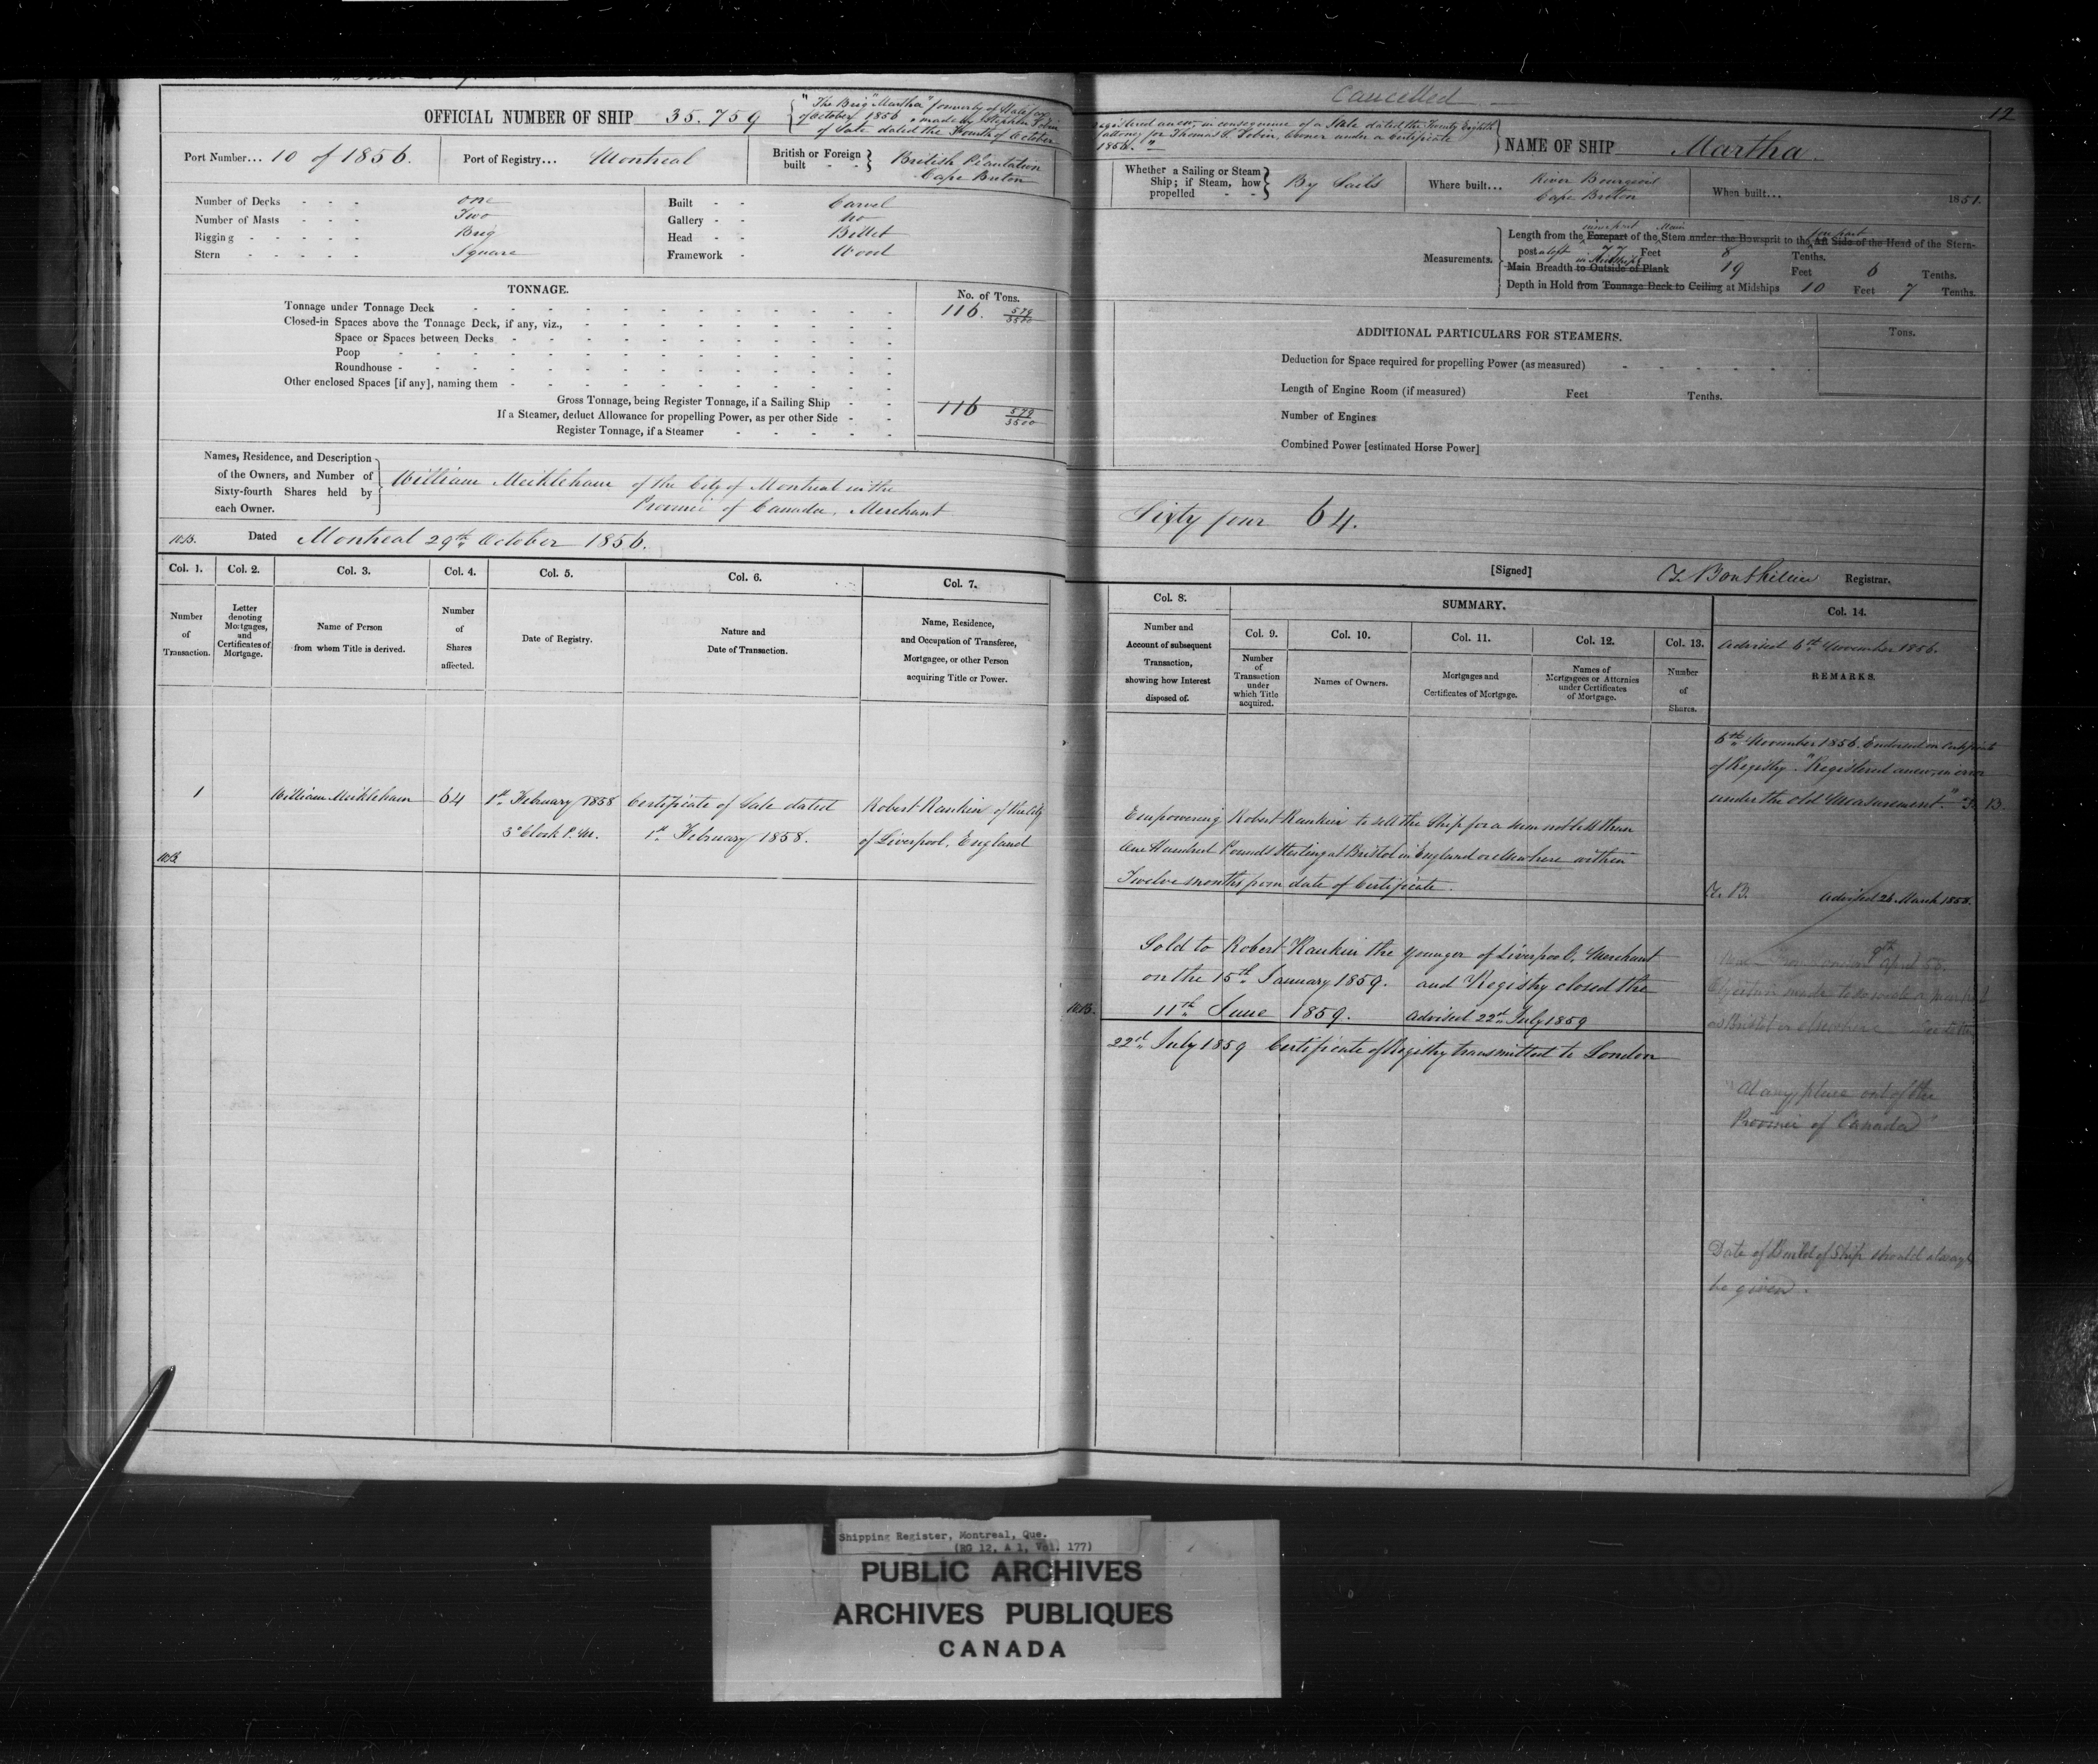 Cancelled
12
OFFICIAL NUMBER OF SHIP 35.759
"The Brig "Martha" formerly of Halifax
of October 1856, made by Stephen Tobin
of Sale dated the Fourth of October
Registered anew, in consequence of a Sale dated the Twenty Eighth
attorney for Thomas S. Tobin, Owner under a Certificate
1856."
NAME OF SHIP Martha.
Port Number... 10 of 1856.
Port of Registry... Montreal
British or Foreign built - - British Plantation
Cape Breton
Whether a Sailing or Steam Ship; if Steam, how propelled - - By Sails
Where built... River Bourgeois
Cape Breton
When built... 1851.
Number of Decks - - - one
Number of Masts - - - Two
Rigging - - - - - Brig
Stern - - - - - Square
Built - - Carvel
Gallery - - No
Head - - Billet
Framework - Wood
Measurements.
Length from the inner part Forepart of the Main Stem under the Bowsprit to the fore part Aft Side of the Head of the Stern-
post aloft 77 Feet 8 Tenths.
Main Breadth in Midships to Outside of Plank 19 Feet 6 Tenths.
Depth in Hold from Tonnage Deck to Ceiling at Midships 10 Feet 7 Tenths.
TONNAGE.
No. of Tons.
Tonnage under Tonnage Deck 116. 579/3500
Closed-in Spaces above the Tonnage Deck, if any, viz.,
Space or Spaces between Decks
Poop
Roundhouse
Other enclosed Spaces [if any], naming them
Gross Tonnage, being Register Tonnage, if a Sailing Ship 116 579/3500
If a Steamer, deduct Allowance for propelling Power, as per other Side
Register Tonnage, if a Steamer
ADDITIONAL PARTICULARS FOR STEAMERS.
Tons.
Deduction for Space required for propelling Power (as measured)
Length of Engine Room (if measured) Feet Tenths.
Number of Engines
Combined Power [estimated Horse Power]
Names, Residence, and Description
of the Owners, and Number of
Sixty-fourth Shares held by
each Owner.
William Meikleham of the City of Montreal in the
Province of Canada, Merchant
Sixty four 64.
Dated Montreal 29th October 1856.
[Signed] T. Bouthillier Registrar.
Col. 1.
Number of Transaction.
Col. 2.
Letter denoting Mortgages, and Certificates of Mortgage.
Col. 3.
Name of Person from whom Title is derived.
Col. 4.
Number of Shares affected.
Col. 5.
Date of Registry.
Col. 6.
Nature and Date of Transaction.
Col. 7.
Name, Residence, and Occupation of Transferee, Mortgagee, or other Person acquiring Title or Power.
Col. 8.
Number and Account of subsequent Transaction, showing how Interest disposed of.
SUMMARY.
Col. 9.
Number of Transaction under which Title acquired.
Col. 10.
Names of Owners.
Col. 11.
Mortgages and Certificates of Mortgage.
Col. 12.
Names of Mortgagees or Attornies under Certificates of Mortgage.
Col. 13.
Number of Shares.
Col. 14.
Advised 6th November 1856.
REMARKS.
1
William Meikleham
64
1st February 1858
3 o'Clock P.M.
Certificate of Sale dated
1st February 1858.
Robert Rankin of the City
of Liverpool, England
Empowering Robert Rankin to sell the Ship for a sum not less than
One Hundred Pounds Sterling at Bristol in England or elsewhere within
Twelve months from date of Certificate.
Sold to Robert Rankin the younger of Liverpool, Merchant
on the 15th January 1859. and Registry closed the
11th June 1859. Advised 22nd July 1859
22nd July 1859 Certificate of Registry transmitted to London
6th November 1856. Endorsed on Certificate
of Registry. "Registered anew, in error
under the old Measurement." T. B.
T. B. Advised 26 March 1858.
9th April 58.
Objection made to
as Bristol or elsewhere
"At any place out of the
Province of Canada"
Date of Build of Ship should always
be given.
Shipping Register, Montreal, Que.
(RG 12, A 1, Vol. 177)
PUBLIC ARCHIVES
ARCHIVES PUBLIQUES
CANADA